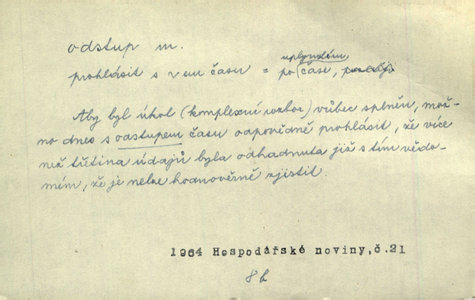 odstup m.
uplynutím
prohlásit s -em času = po čase,
Aby byl úkol (komplexní rozbor) vůbec splněn, mož-
no dnes s odstupem času odpovědně prohlásit, že více
než třetina údajů byla odhadnuta již s tím vědo-
mím, že je nelze hodnověrně zjistit.
1964 Hospodářské noviny,č.21
8b